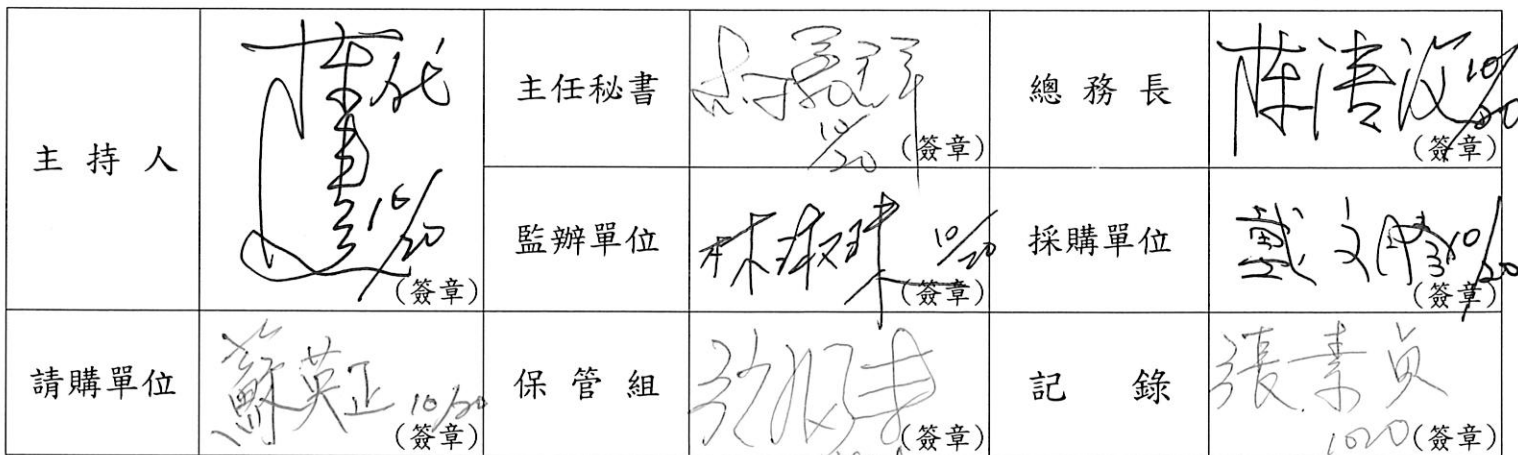 主持人
10/20
(簽章)
主任秘書
10/20
(簽章)
總務長
10/20
(簽章)
監辦單位
林淑珠 10/20
(簽章)
採購單位
戴文 10/20
(簽章)
請購單位
蘇英正 10/20
(簽章)
保管組
(簽章)
記錄
張素貞
1020 (簽章)